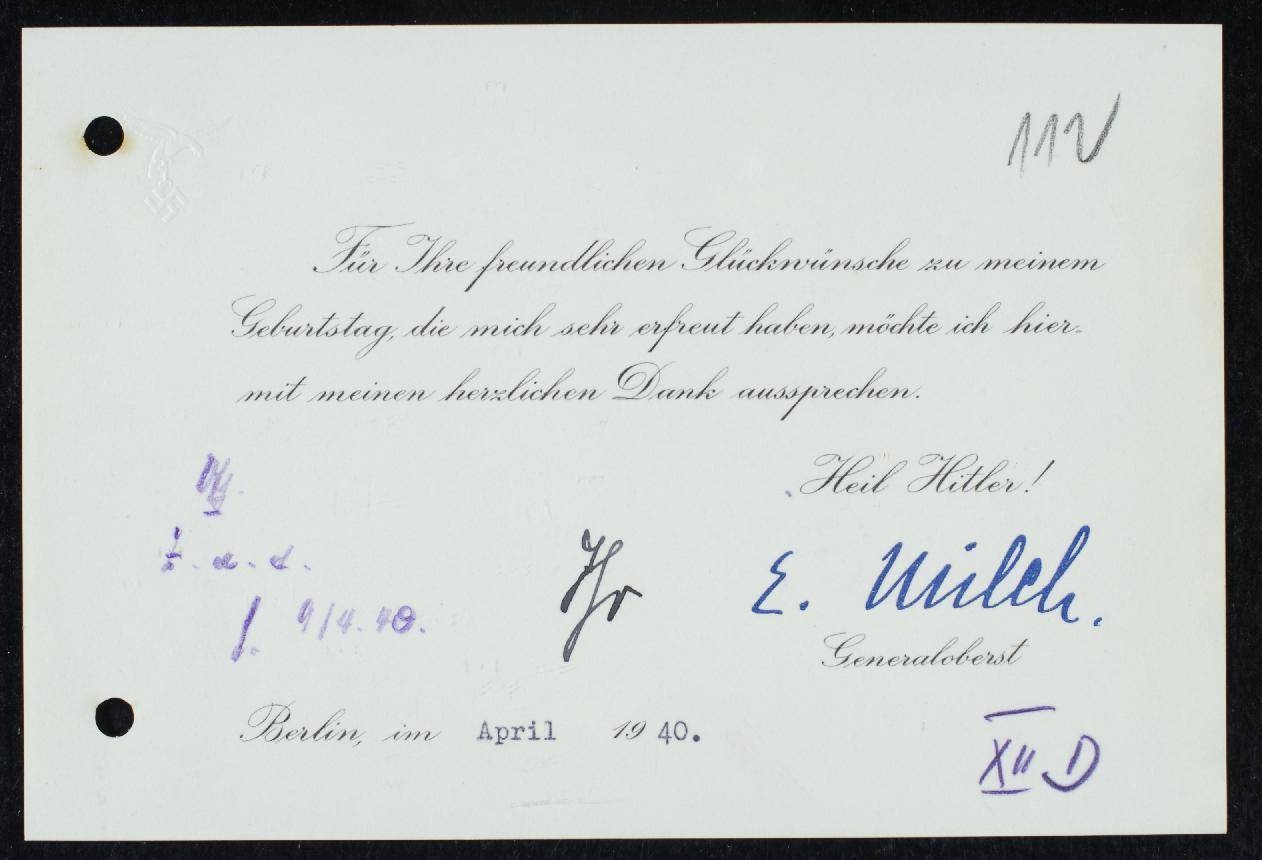 112
Für Ihre freundlichen Glückwünsche zu meinem
Geburtstag, die mich sehr erfreut haben, möchte ich hier-
mit meinen herzlichen Dank aussprechen.
Heil Hitler!
z. d. d.
9/4. 40.
E. Milch.
Generaloberst
Berlin, im April 1940.
XII D